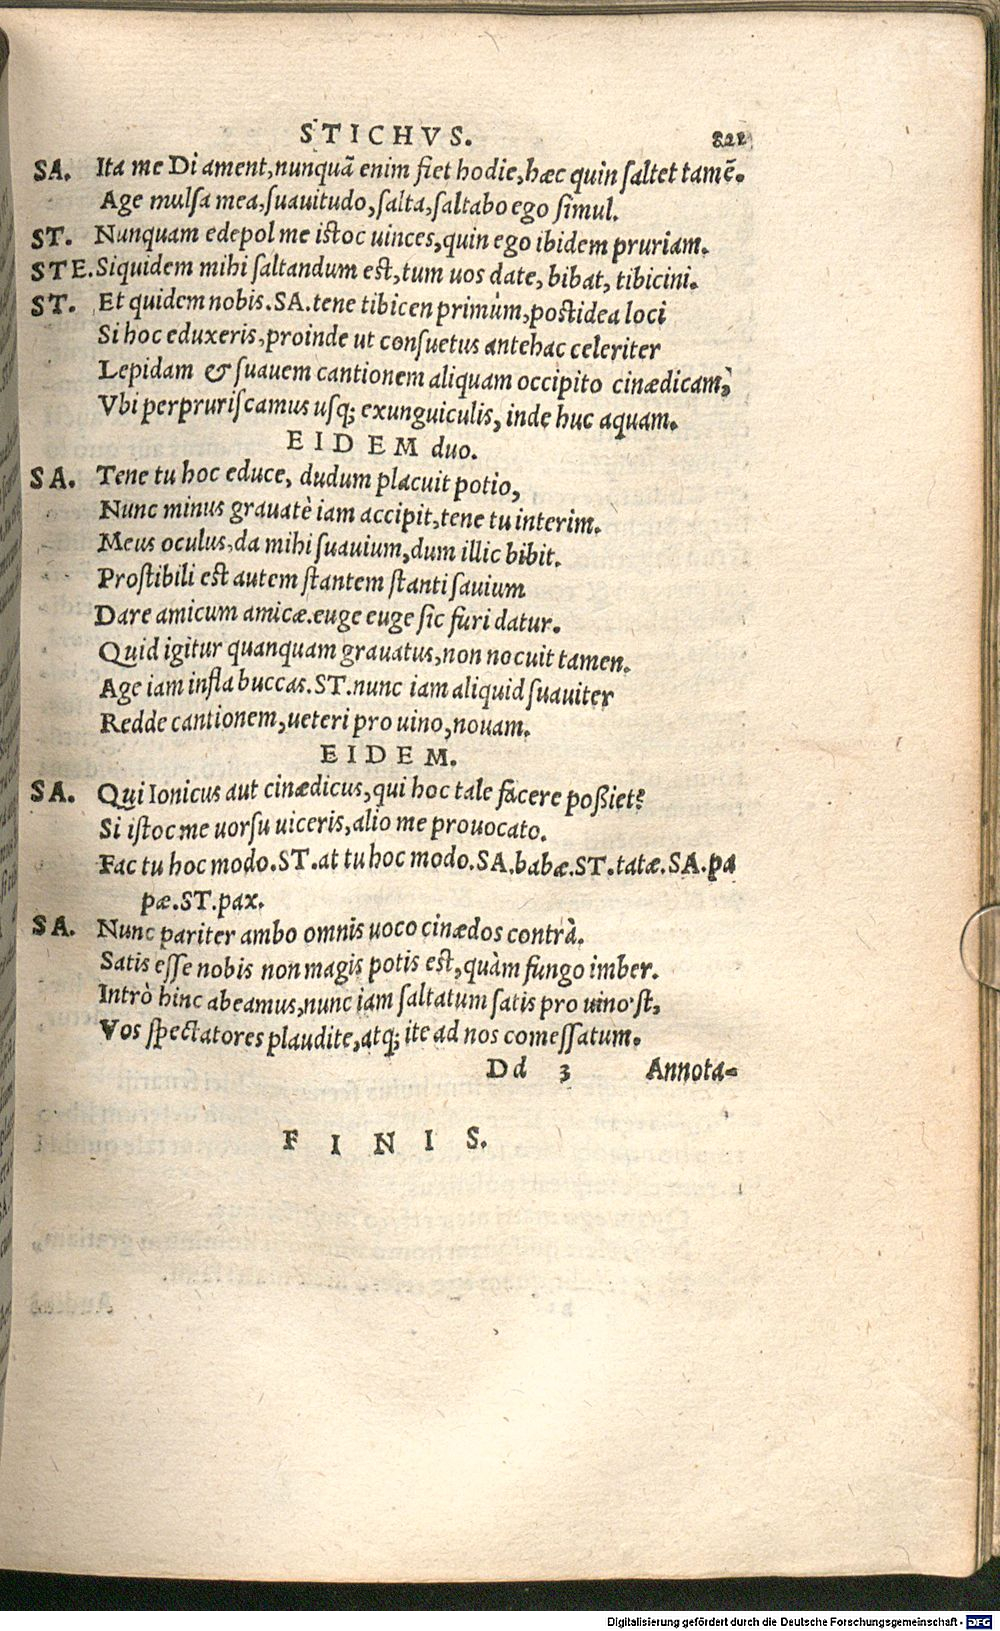 STICHVS. 821
SA. Ita me Di ament, nunquã enim fiet hodie, hæc quin saltet tamẽ.
Age mulsa mea, suauitudo, salta, saltabo ego simul.
ST. Nunquam edepol me istoc uinces, quin ego ibidem pruriam.
STE. Siquidem mihi saltandum est, tum uos date, bibat, tibicini.
ST. Et quidem nobis. SA. tene tibicen primùm, postidea loci
Si hoc eduxeris, proinde ut consuetus antehac celeriter
Lepidam & suauem cantionem aliquam occipito cinædicam,
Vbi perpruriscamus usq; exunguiculis, inde huc aquam.
EIDEM duo.
SA. Tene tu hoc educe, dudum placuit potio,
Nunc minus grauatè iam accipit, tene tu interim.
Meus oculus, da mihi suauium, dum illic bibit.
Prostibili est autem stantem stanti sauium
Dare amicum amicæ. euge euge sic furi datur.
Quid igitur quanquam grauatus, non nocuit tamen.
Age iam infla buccas. ST. nunc iam aliquid suauiter
Redde cantionem, ueteri pro uino, nouam.
EIDEM.
SA. Qui Ionicus aut cinædicus, qui hoc tale facere poßiet?
Si istoc me uorsu uiceris, alio me prouocato.
Fac tu hoc modo. ST. at tu hoc modo. SA. babæ. ST. tatæ. SA. pa
pæ. ST. pax.
SA. Nunc pariter ambo omnis uoco cinædos contrà.
Satis esse nobis non magis potis est, quàm fungo imber.
Intrò hinc abeamus, nunc iam saltatum satis pro uino'st,
Vos spectatores plaudite, atq; ite ad nos comessatum.
Dd 3 Annota-
FINIS.
Digitalisierung gefördert durch die Deutsche Forschungsgemeinschaft - DFG